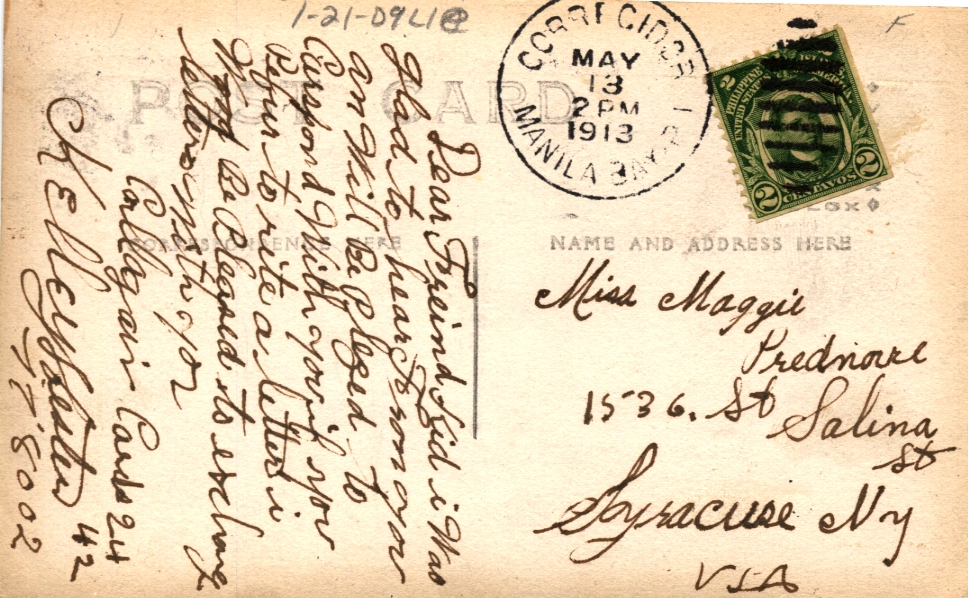 1-21-09L1@
F
POST CARD
CORREGIDOR
MAY
13
2 PM
1913
MANILA BAY P.I.
PHILIPPINE ISLANDS
UNITED STATES OF AMERICA
2 CENTAVOS 2
CORRESPONDENCE HERE
NAME AND ADDRESS HERE
Dear Freind Lid i Was
glad to hear from you
an Will Be Plezed to
Corspond With you if you
Befur to rite a letter i
Wi Be Pleased to exchang
letters with yor
Callagain Cards 24
C K Elley 42
JT 8002
Miss Maggie
Prednore
1536. St Salina
St
Syracuse Ny
USA